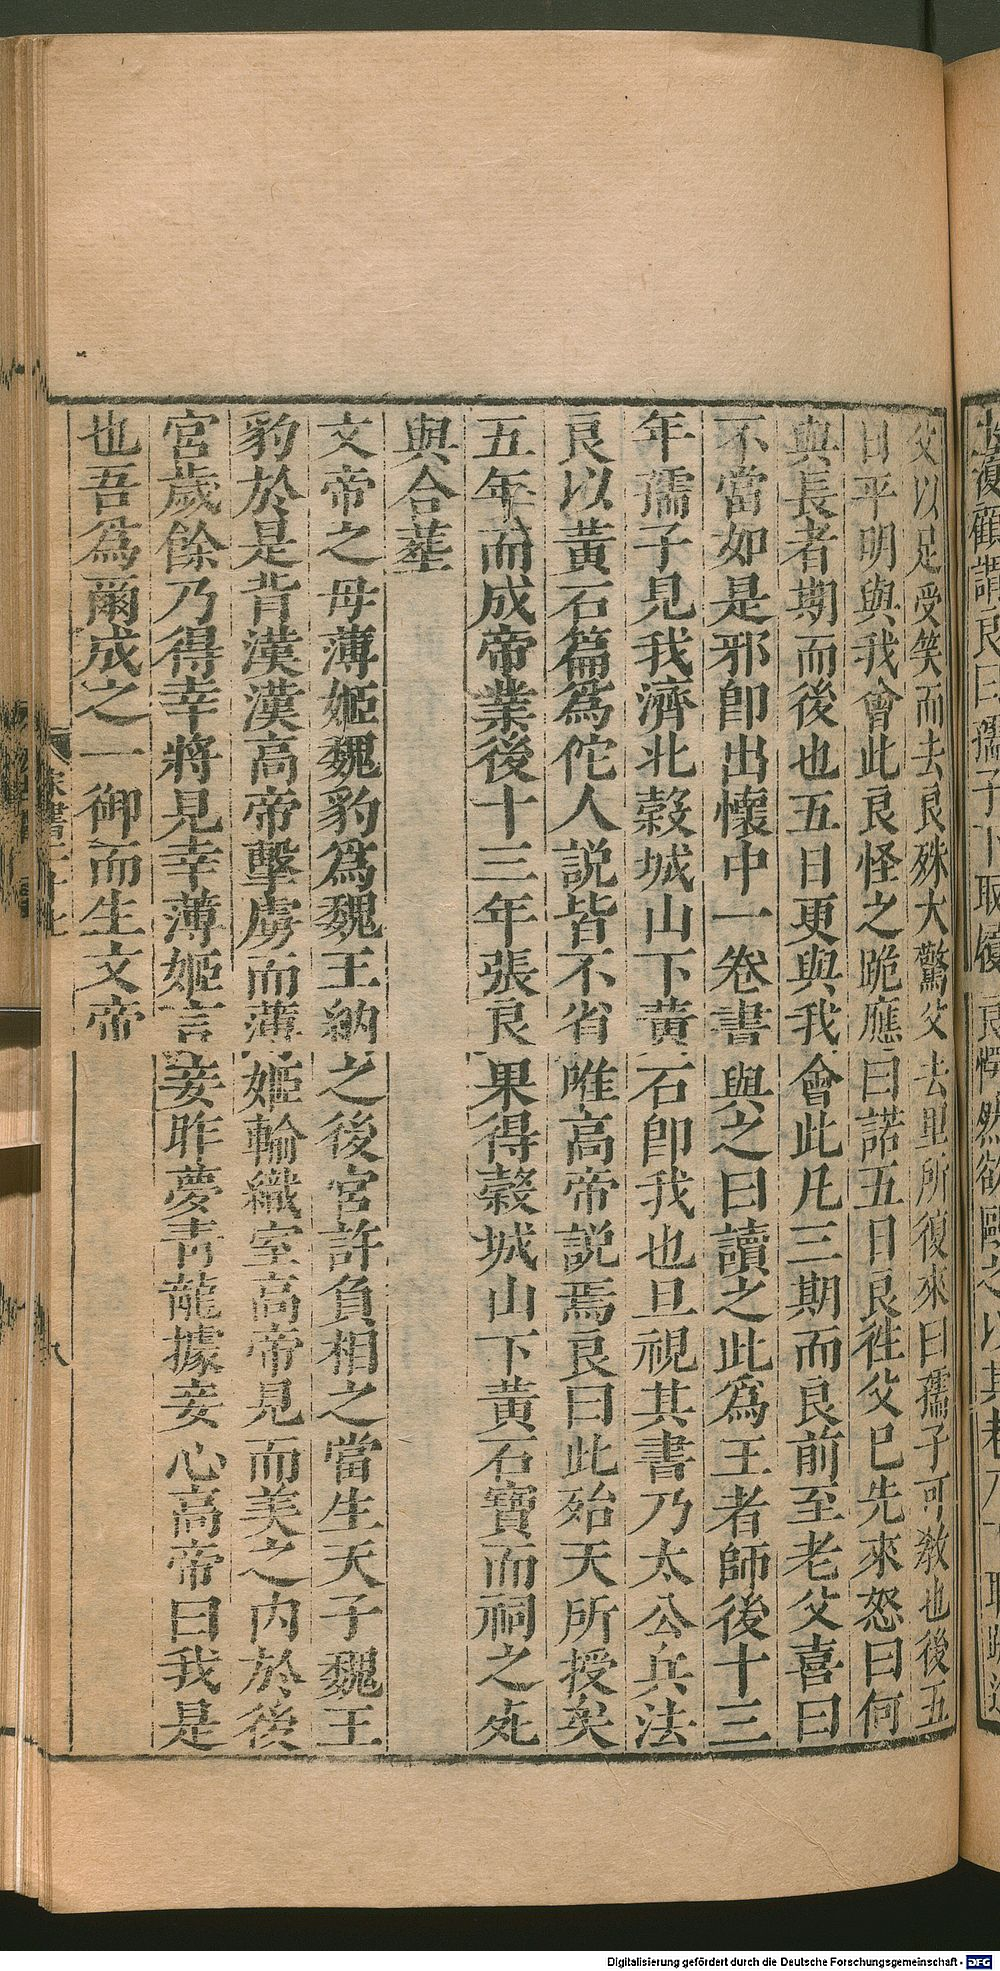 父以足受笑而去良殊大驚父去里所復來曰孺子可教也後五
日平明與我會此良怪之跪應曰諾五日良往父已先來怒曰何
與長者期而後也五日更與我會此凡三期而良前至老父喜曰
不當如是邪卽出懷中一卷書與之曰讀之此爲王者師後十三
年孺子見我濟北榖城山下黃石卽我也旦視其書乃太公兵法
良以黃石篇爲佗人説皆不省唯高帝説焉良曰此殆天所授矣
五年而成帝業後十三年張良果得榖城山下黃石寶而祠之死
與合葬
文帝之母薄姬魏豹爲魏王納之後宮許負相之當生天子魏王
豹於是背漢漢高帝擊虜而薄姬輸織室高帝見而美之内於後
宮歲餘乃得幸將見幸薄姬言妾昨夢青龍據妾心高帝曰我是
也吾爲爾成之一御而生文帝
宋書二十七
八
Digitalisierung gefördert durch die Deutsche Forschungsgemeinschaft - DFG